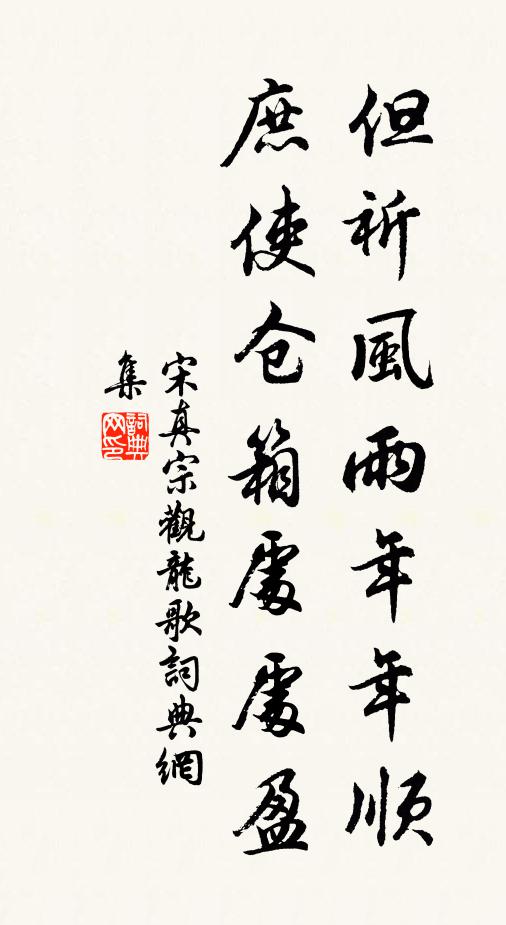 但祈風雨年年順
庶使仓箱處處盈
宋真宗觀龍歌詞典網
集
詞典
网印